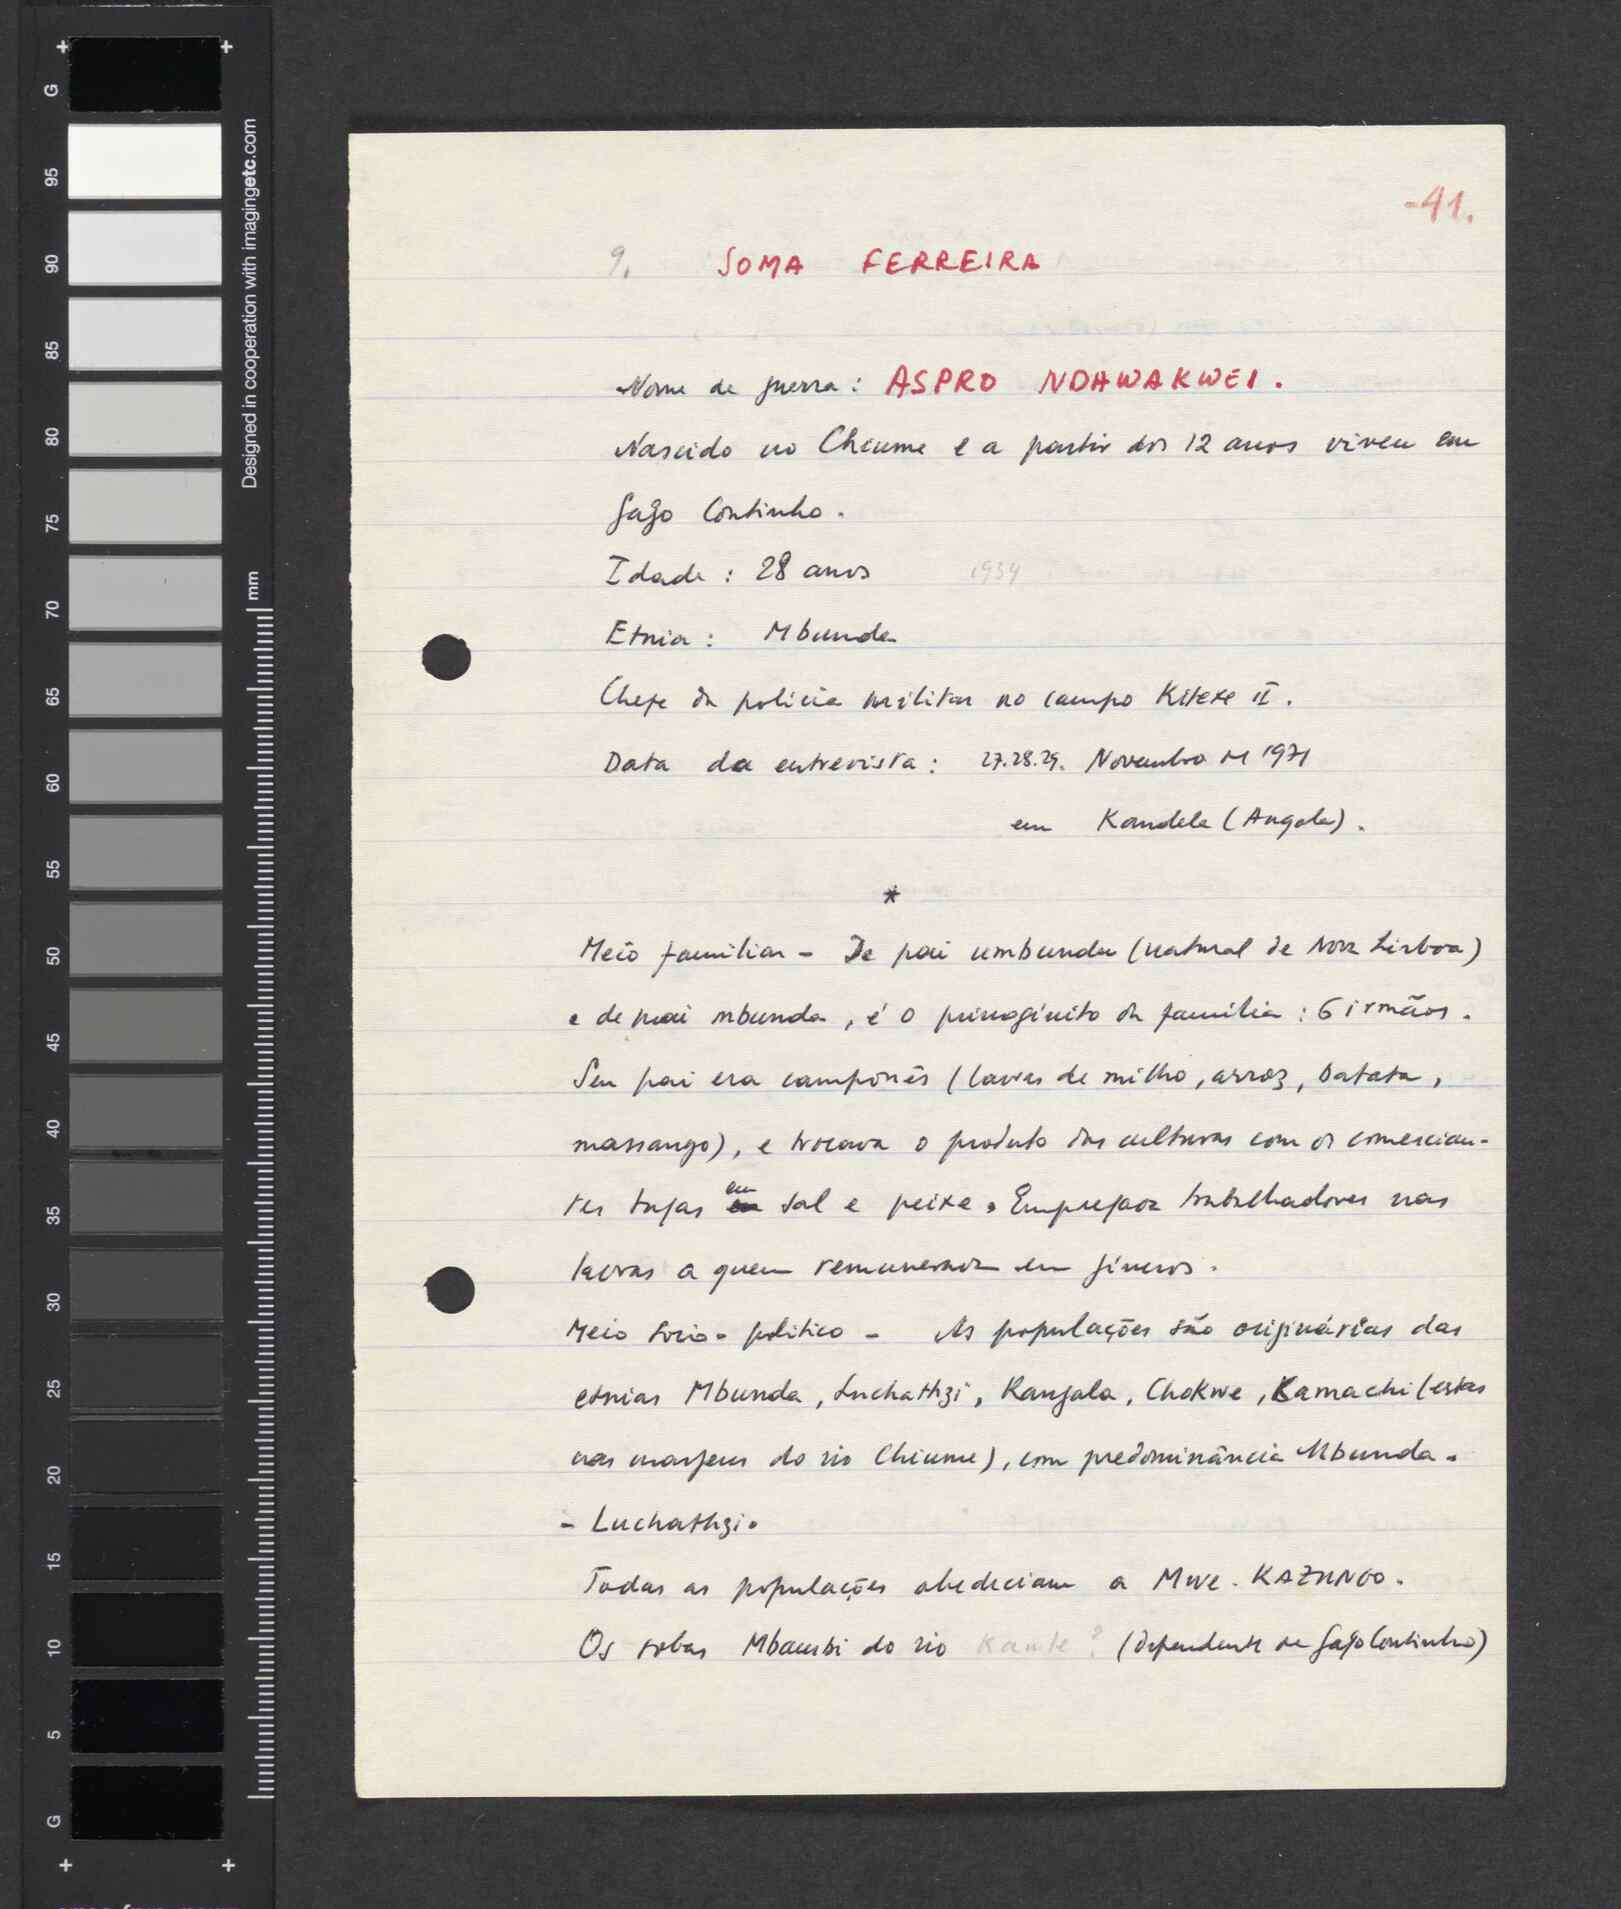 -41.
9. SOMA FERREIRA
Nome de guerra : ASPRO NDAWAKWEI.
Nascido no Chiume e a partir dos 12 anos viveu em
Gago Coutinho.
Idade : 28 anos 1934
Etnia : Mbunda
Chefe da policia militar no campo Kitexe II.
Data da entrevista : 27.28.29. Novembro de 1971
em Kandela (Angola).
*
Meio familiar - De pai umbundu (natural de Nova Lisboa)
e de mãi mbunda, é o primogénito da familia : 6 irmãos.
Seu pai era camponês (lavras de milho, arroz, batata,
massango), e trocava o produto das culturas com os comercian-
tes tugas em sal e peixe. Empregava trabalhadores nas
lavras a quem remunerava em géneros.
Meio socio-politico - As populações são originárias das
etnias Mbunda, Luchathzi, Kangala, Chokwe, Kamachi (estas
nas margens do rio Chiume), com predominância Mbunda-
- Luchathzi.
Todas as populações obedeciam a Mwe. KAZUNGO.
Os sobas Mbambi do rio Kante ? (dependente de Gago Coutinho)
G
95
90
85
80
75
70
65
60
55
50
45
40
35
30
25
20
15
10
5
G
Designed in cooperation with imagingetc.com
mm